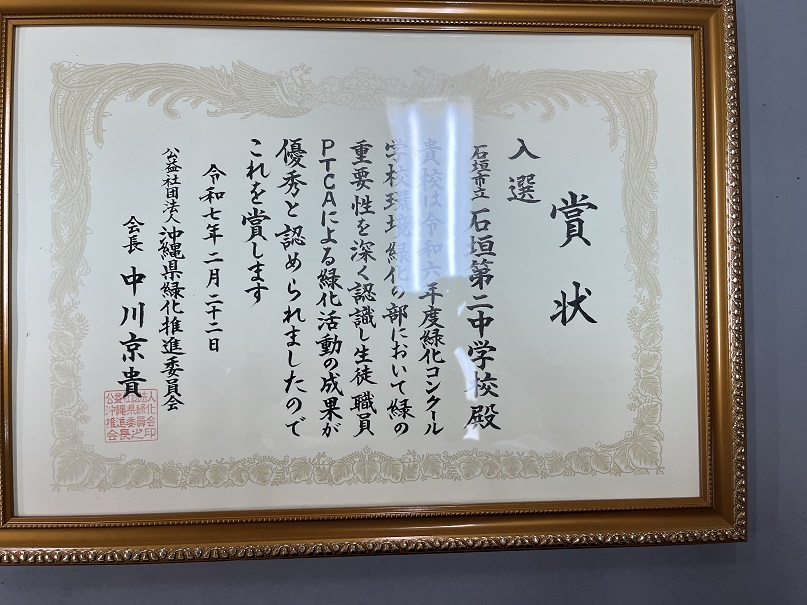 賞状
入選
石垣市立 石垣第二中学校殿
貴校は令和六年度緑化コンクール
学校環境緑化の部において緑の
重要性を深く認識し生徒職員
PTCAによる緑化活動の成果が
優秀と認められましたので
これを賞します
令和七年二月二十二日
公益社団法人 沖縄県緑化推進委員会
会長 中川京貴